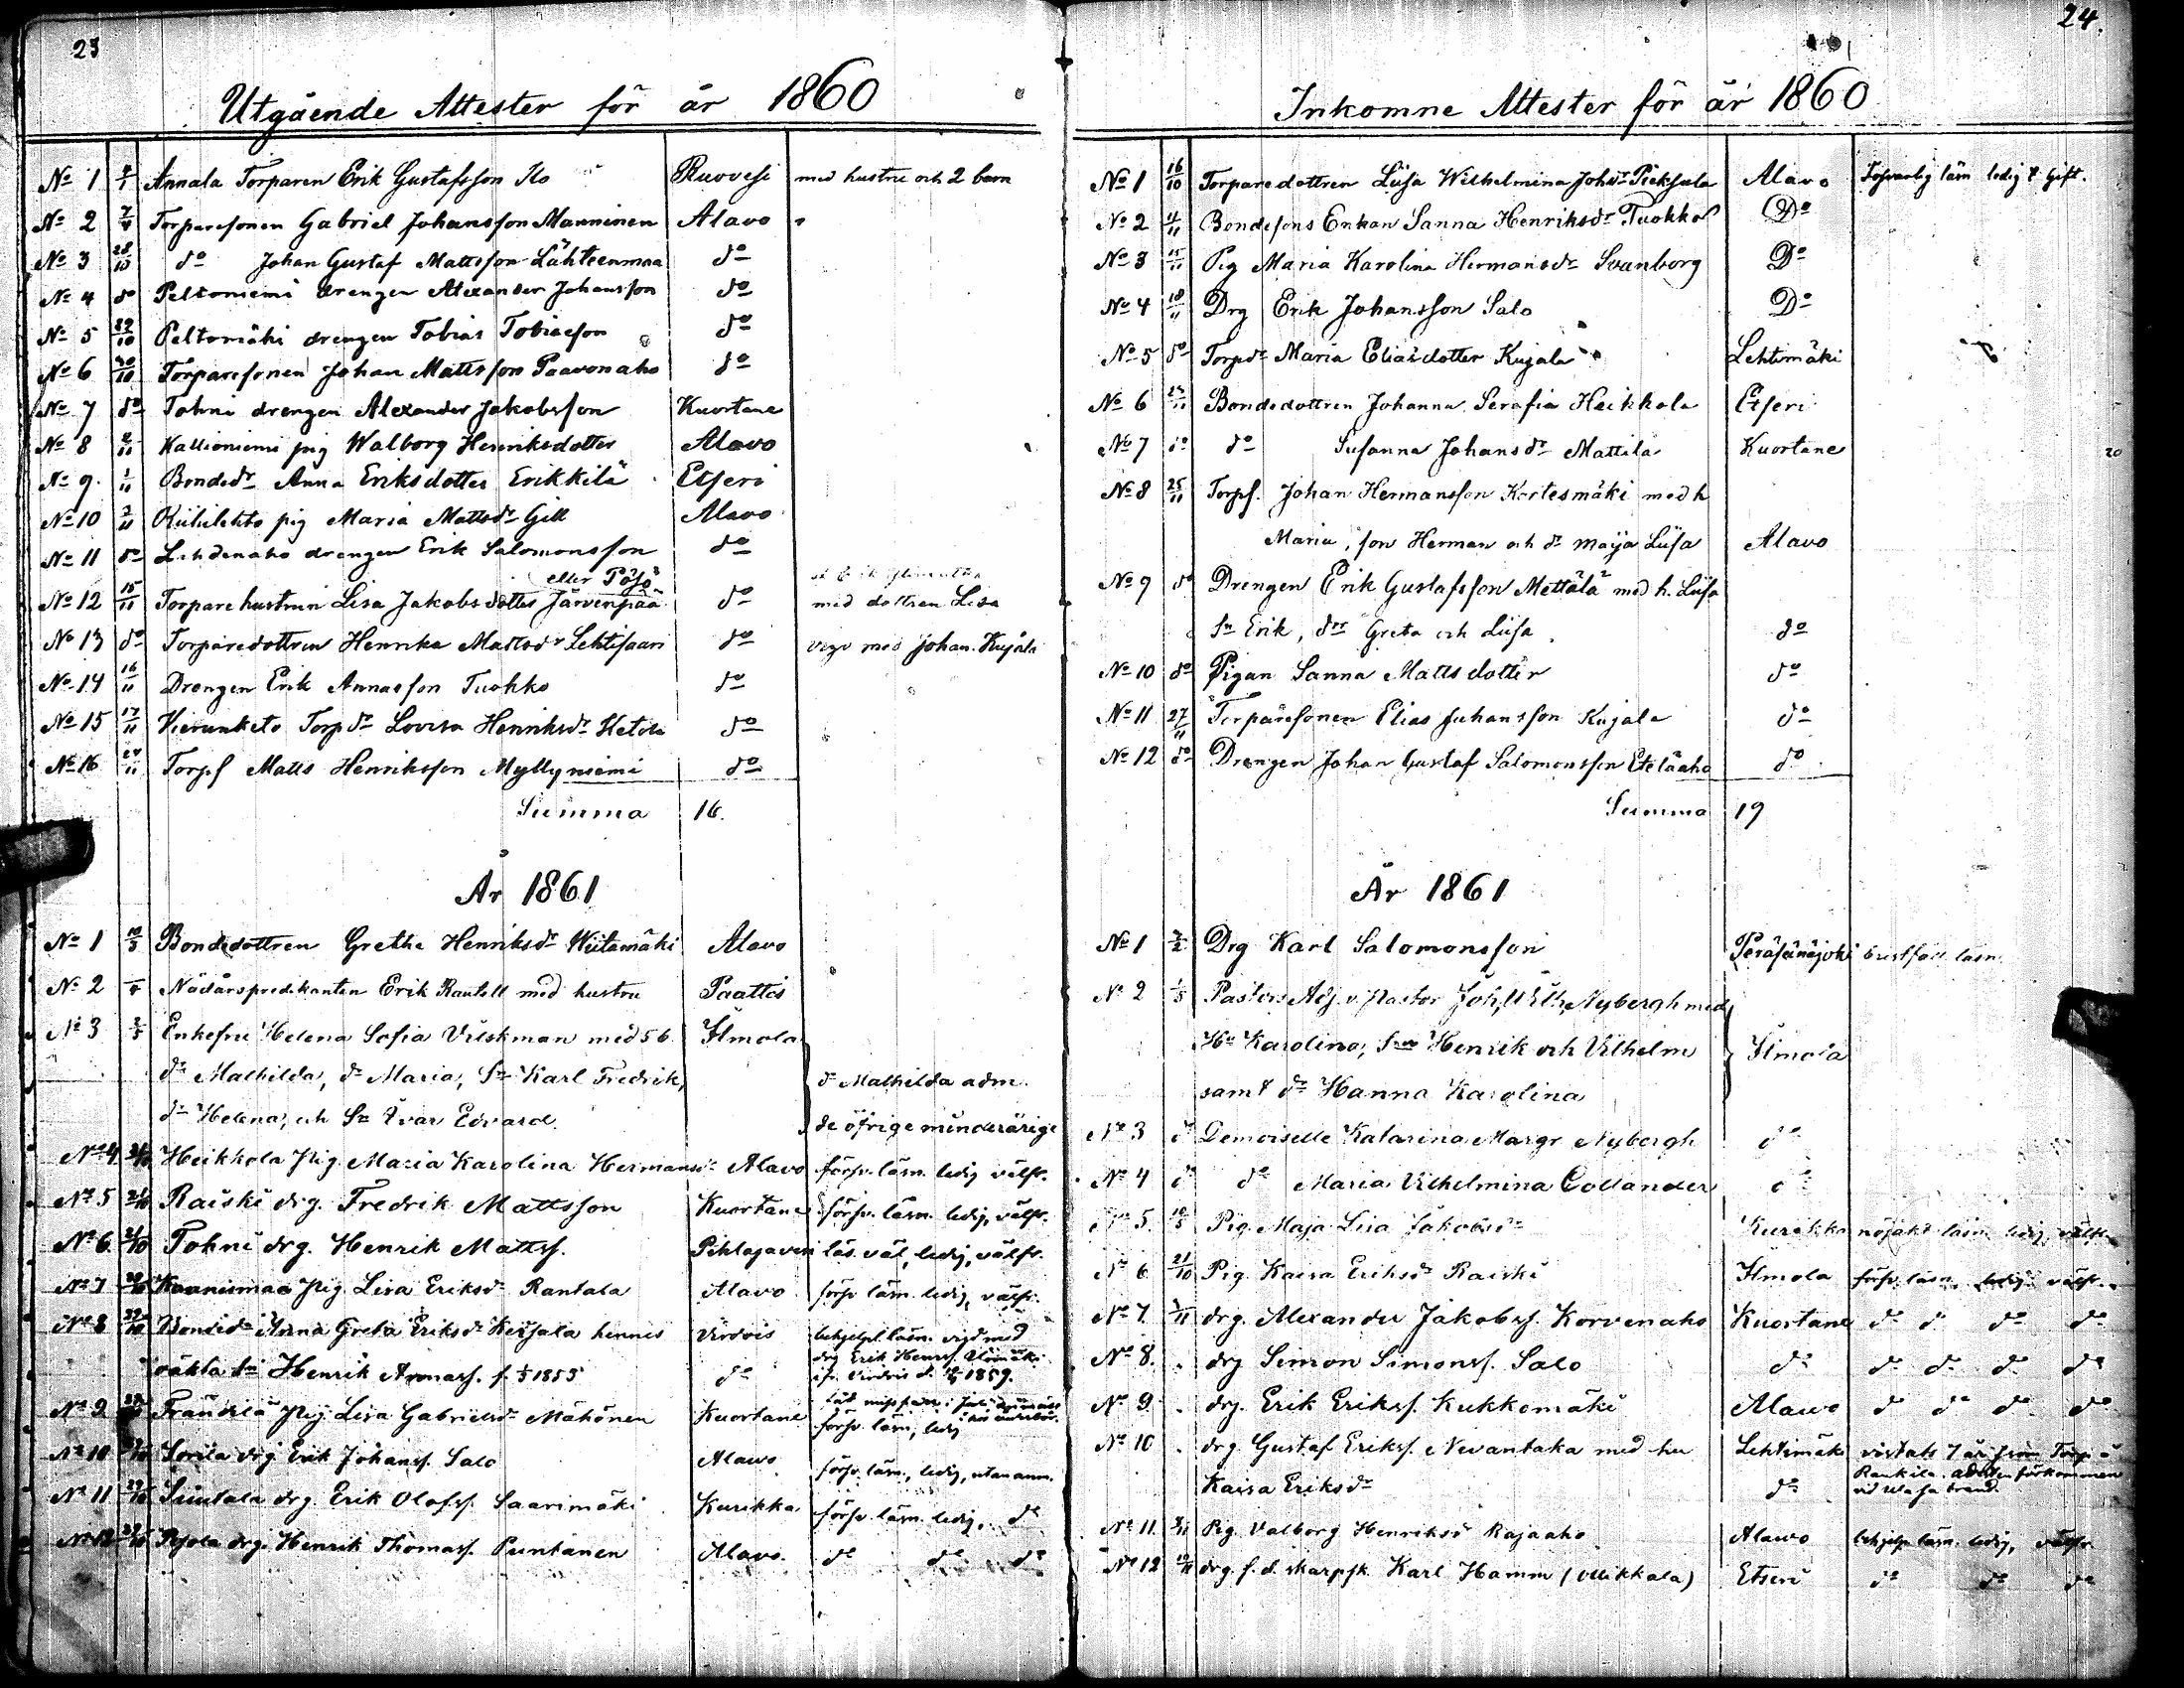 23
Utgående Attester för år 1860
No 1 Annala Torparen Erik Gustafsson Ilo Ruovesi med hustru och 2 barn
No 2 7/4 Torparesonen Gabriel Johansson Manninen Alavo
No 3 28/10 do Johan Gustaf Mattsson Lähteenmaa do
No 4 do Peltoniemi drengen Alexander Johansson do
No 5 29/10 Peltomäki drengen Tobias Tobiasson do
No 6 30/10 Torparesonen Johan Mattsson Paavonaho do
No 7 do Tohni drengen Alexander Jakobsson Kuortane
No 8 Kallioniemi pig Walborg Henriksdotter Alavo
No 9. 1/11 Bondedr Anna Eriksdotter Erikkilä Etseri
No 10 2/11 Riihilehto pig Maria Mattsdr Gill Alavo
No 11 do Lehdenaho drengen Erik Salomonsson do
eller Pöfö
No 12 15/11 Torparehustrun Lisa Jakobsdotter Järvenpää do med dottren Lisa
No 13 do Torparedottren Henrika Mattsdr Lehtisaari do vigd med Johan Kujala
No 14 16/11 Drengen Erik Annasson Tuokko do
No 15 17/11 Vierunketo Torpdr Lovisa Henriksdr Ketola do
No 16 Torpf Matts Henriksson Myllyniemi do
Summa 16.
År 1861
No 1 10/3 Bondedottren Grethe Henriksdr Wiitamäki Alavo
No 2 Nödårspredikanten Erik Rantell med hustru Paattis
No 3 Enkefru Helena Sofia Vilskman med 5 b. Ilmola
dr Mathilda, dr Maria, Sn Karl Fredrik, dr Mathilda adm.
dr Helena, och Sn Ivar Edvard. de öfrige minderårige
No 4 Heikkola Pig. Maria Karolina Hermansdr Alavo försv. läsn. ledig välfr.
No 5 Raiski drg. Fredrik Mattsson Kuortane försv. läsn. ledig, välfr.
No 6 Tohni drg. Henrik Mattss. Pihlajavesi läs. väl, ledig, välfr.
No 7 Kaunismaa Pig. Lisa Eriksdr Rantala Alavo försv läsn. ledig, välfr.
No 8 Bondedr Anna Greta Eriksdr Keisala hennes Virdois behjelpl. läsn. vigd med
drg Erik Henrss.
oäkta Sn Henrik Annass. f. 1855 do 1859.
No 9 Frändilä Pig Lisa Gabrielsdr Mähönen Kuortane
försv. läsn, ledig
No 10 Sorila drg. Erik Johanss. Salo Alawo försv. läsn., ledig, utan anm.
No 11 Sinitala drg. Erik Olofss. Saarimäki Kurikka försv. läsn. ledig, do
No 12 Pesola drg. Henrik Thomass. Puntanen Alavo. do do do
24.
Inkomne Attester för år 1860
No 1 16/10 Torparedottren Liisa Wilhelmina Johdr Pieksula Alavo Försvarlig läsn ledig t. Gift.
No 2 4/11 Bondesons Enkan Sanna Henriksdr Tuokko Do
No 3 15/11 Pig Maria Karolina Hermansdr Svanborg Do
No 4 18/11 Drg Erik Johansson Salo Do
No 5 do Torpdr Maria Eliasdotter Kujala Lehtimäki
No 6 Bondedottren Johanna Serafia Heikkola Etseri
No 7 do do Susanna Johansdr Mattila Kuortane
No 8 25/11 Torpf. Johan Hermansson Kortesmäki med h
Maria, son Herman och dr Maija Liisa Alavo
No 9 do Drengen Erik Gustafsson Mettälä med h. Liisa
Sn Erik, drr Greta och Liisa do
No 10 do Pigan Sanna Mattsdotter do
No 11 27/11 Torparesonen Elias Juhansson Kujala do
No 12 do Drengen Johan Gustaf Salomonsson Eteläaho do
Summa 19
År 1861
No 1 Drg Karl Salomonsson Peräseinäjoki bristfäll. läsn.
No 2 Pastors Adj. v. Pastor Joh. Wilh. Nybergh med
Hu Karolina, Snr Henrik och Vilhelm Ilmola
samt dr Hanna Karolina
No 3 do Demoiselle Katarina Margr Nybergh do
No 4 do do Maria Vilhelmina Collander do
No 5. 10/5 Pig. Maja Lisa Jakobsdr Kurikka nöjakt läsn. ledig, välfr.
No 6 21/10 Pig. Kaisa Eriksdr Raiski Ilmola försv. läsn. ledig. välfr.
No 7 drg. Alexander Jakobss. Korvenaho Kuortane do do do do
No 8. drg Simon Simonss. Salo do do do do do
No 9 drg. Erik Erikss. Kukkomäki Alawo do do do do
No 10 drg. Gustaf Erikss. Nevantaka med hu Lehtimäki vistats 7 år som Torp.
Kaisa Eriksdr do
No 11 Pig. Valborg Henriksdr Rajaaho Alawo behjelp. läsn. ledig, välfr.
No 12 drg. f. d. skarpsk. Karl Hamm (Mikkala) Etseri do do do